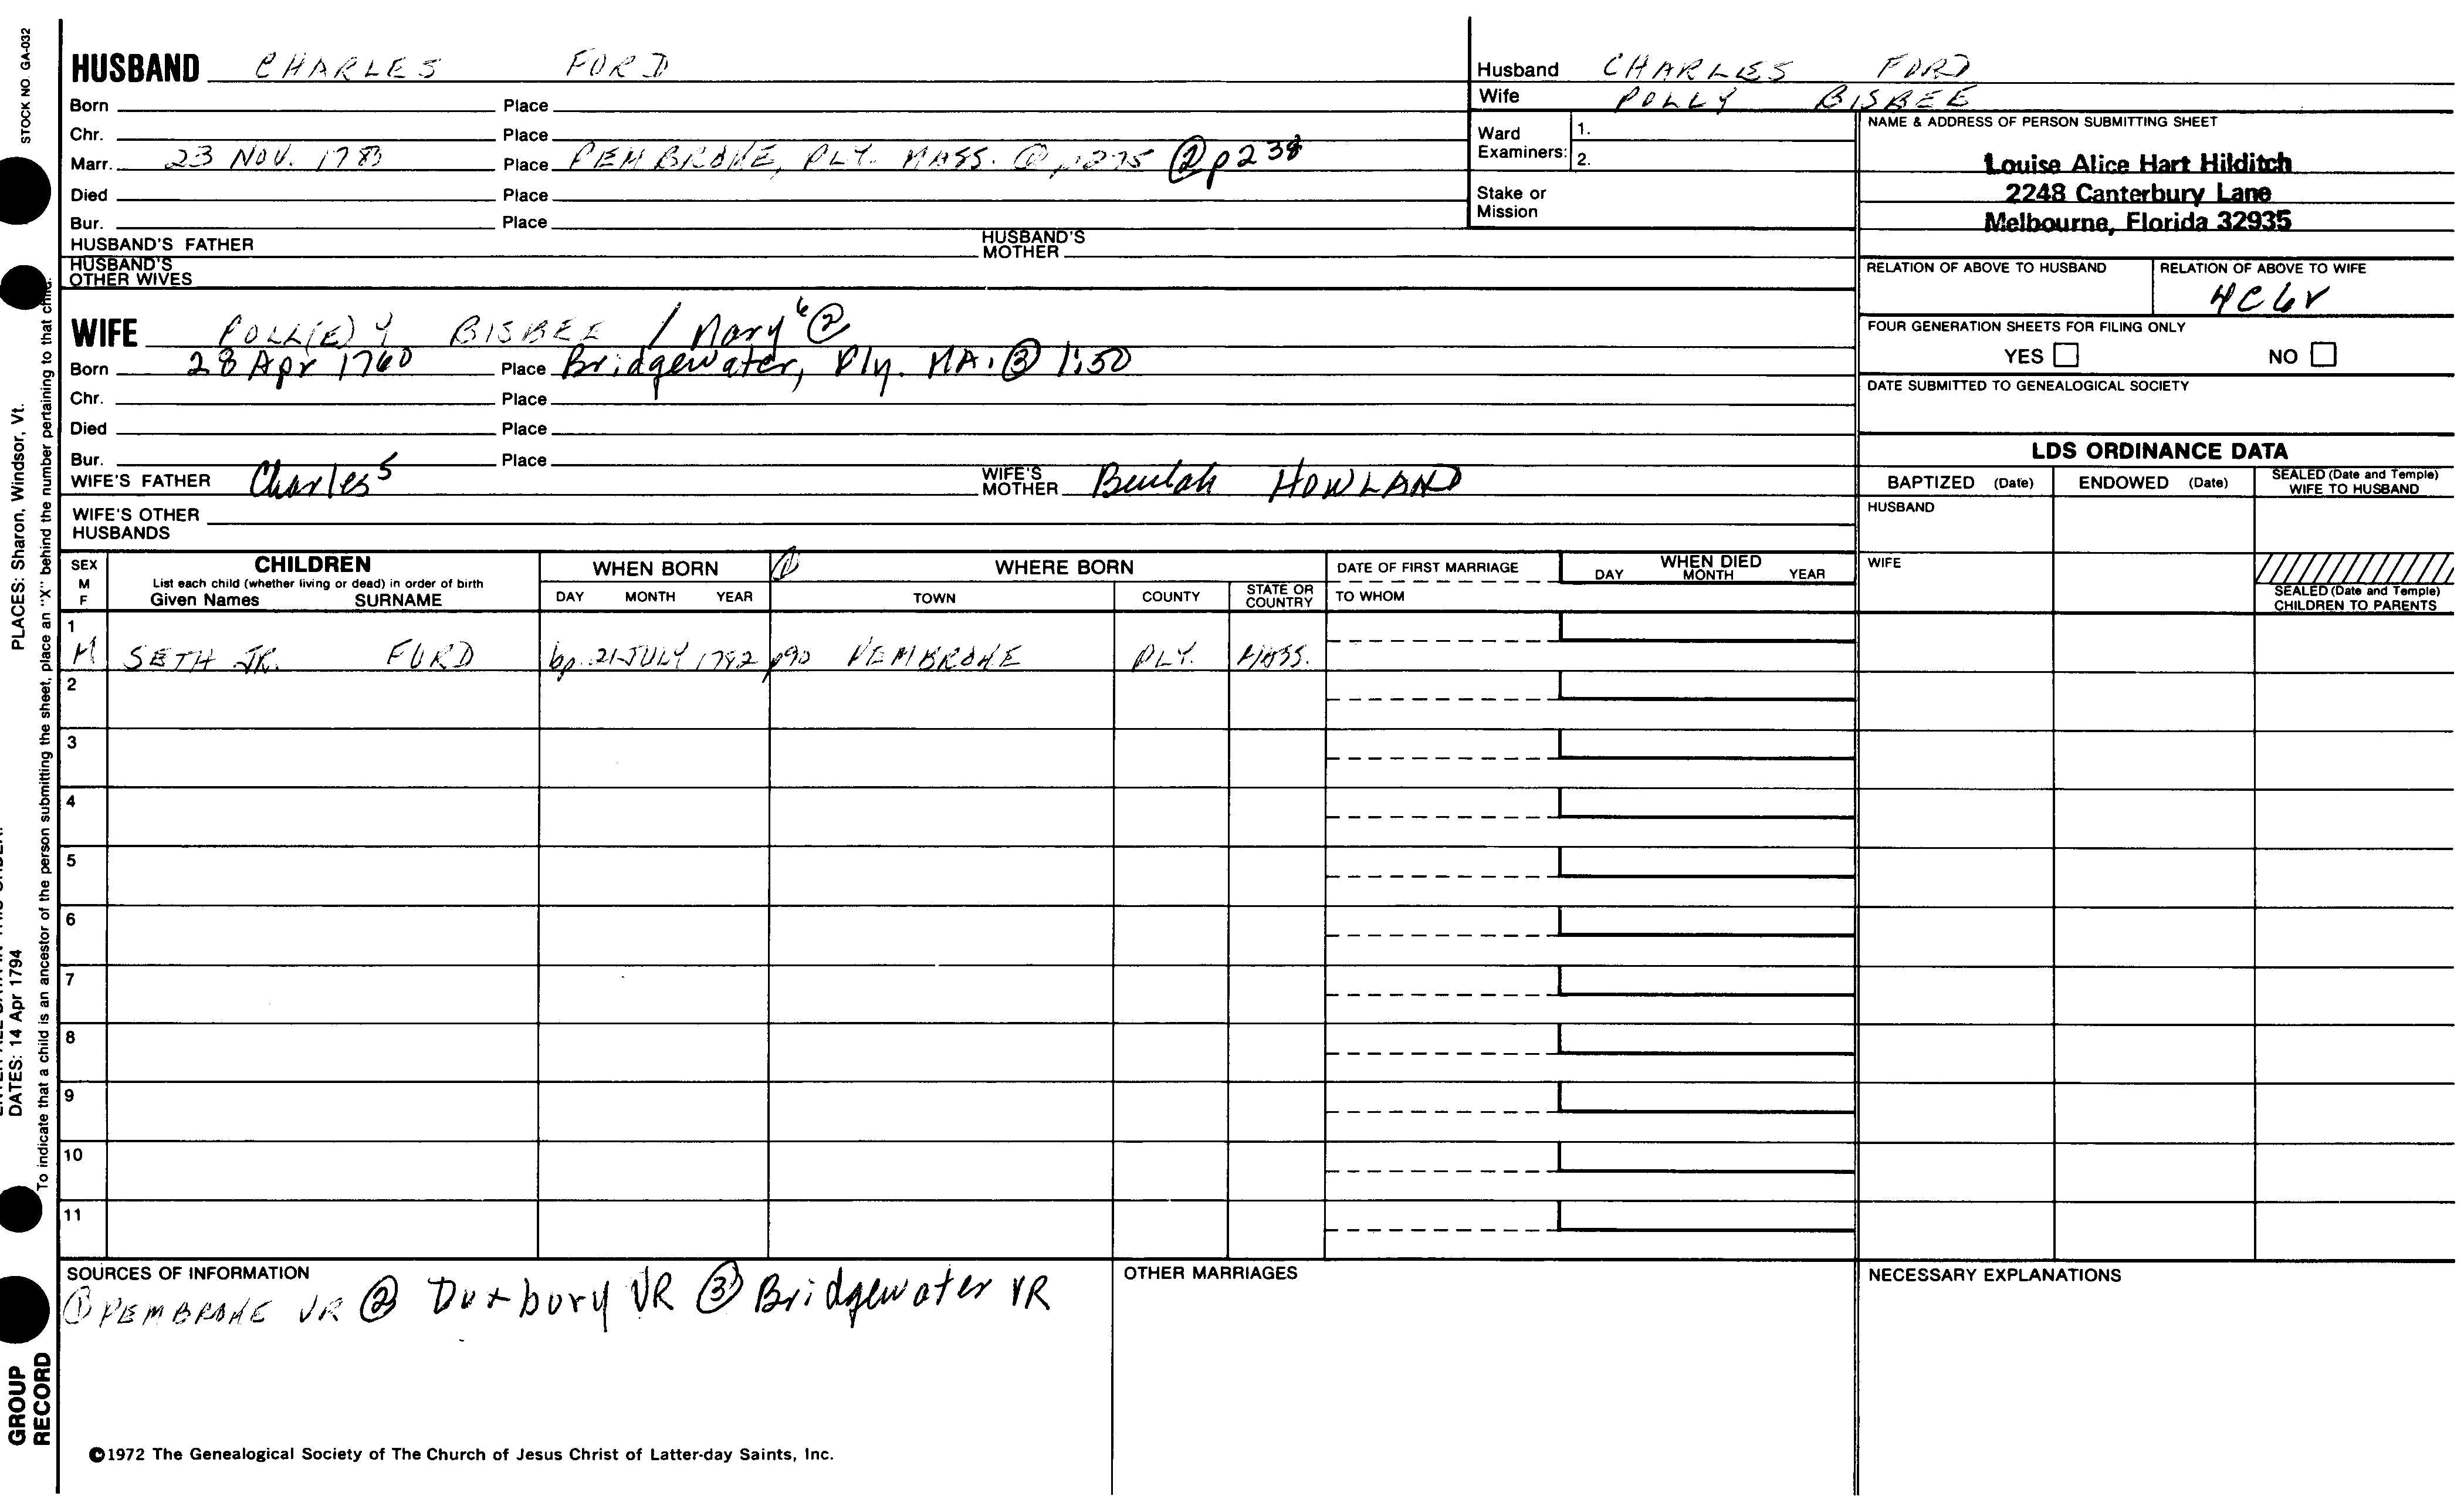 STOCK NO. GA-032
PLACES: Sharon, Windsor, Vt.
DATES: 14 Apr 1794
To indicate that a child is an ancestor of the person submitting the sheet, place an "X" behind the number pertaining to that child.
GROUP
RECORD
HUSBAND CHARLES FORD
Born Place
Chr. Place
Marr. 23 NOV. 1780 Place PEMBROKE, PLY. MASS. ① p275 ② p238
Died Place
Bur. Place
HUSBAND'S FATHER HUSBAND'S MOTHER
HUSBAND'S OTHER WIVES
Husband CHARLES FORD
Wife POLLY BISBEE
Ward Examiners: 1.
2.
Stake or Mission
NAME & ADDRESS OF PERSON SUBMITTING SHEET
Louise Alice Hart Hilditch
2248 Canterbury Lane
Melbourne, Florida 32935
RELATION OF ABOVE TO HUSBAND RELATION OF ABOVE TO WIFE
4C6r
FOUR GENERATION SHEETS FOR FILING ONLY
YES NO
DATE SUBMITTED TO GENEALOGICAL SOCIETY
WIFE POLL(E)Y BISBEE / Mary 6 ②
Born 28 Apr 1760 Place Bridgewater, Ply. MA. ③ 1:50
Chr. Place
Died Place
Bur. Place
WIFE'S FATHER Charles 5 WIFE'S MOTHER Beulah HOWLAND
WIFE'S OTHER HUSBANDS
LDS ORDINANCE DATA
BAPTIZED (Date) ENDOWED (Date) SEALED (Date and Temple) WIFE TO HUSBAND
HUSBAND
WIFE
SEALED (Date and Temple) CHILDREN TO PARENTS
SEX M F CHILDREN WHEN BORN ① WHERE BORN DATE OF FIRST MARRIAGE WHEN DIED
List each child (whether living or dead) in order of birth
Given Names SURNAME DAY MONTH YEAR TOWN COUNTY STATE OR COUNTRY TO WHOM DAY MONTH YEAR
1
M SETH JR. FORD bp. 21 JULY 1782 p90 PEMBROKE PLY. MASS.
2
3
4
5
6
7
8
9
10
11
SOURCES OF INFORMATION OTHER MARRIAGES NECESSARY EXPLANATIONS
① PEMBROKE VR ② Duxbury VR ③ Bridgewater VR
©1972 The Genealogical Society of The Church of Jesus Christ of Latter-day Saints, Inc.